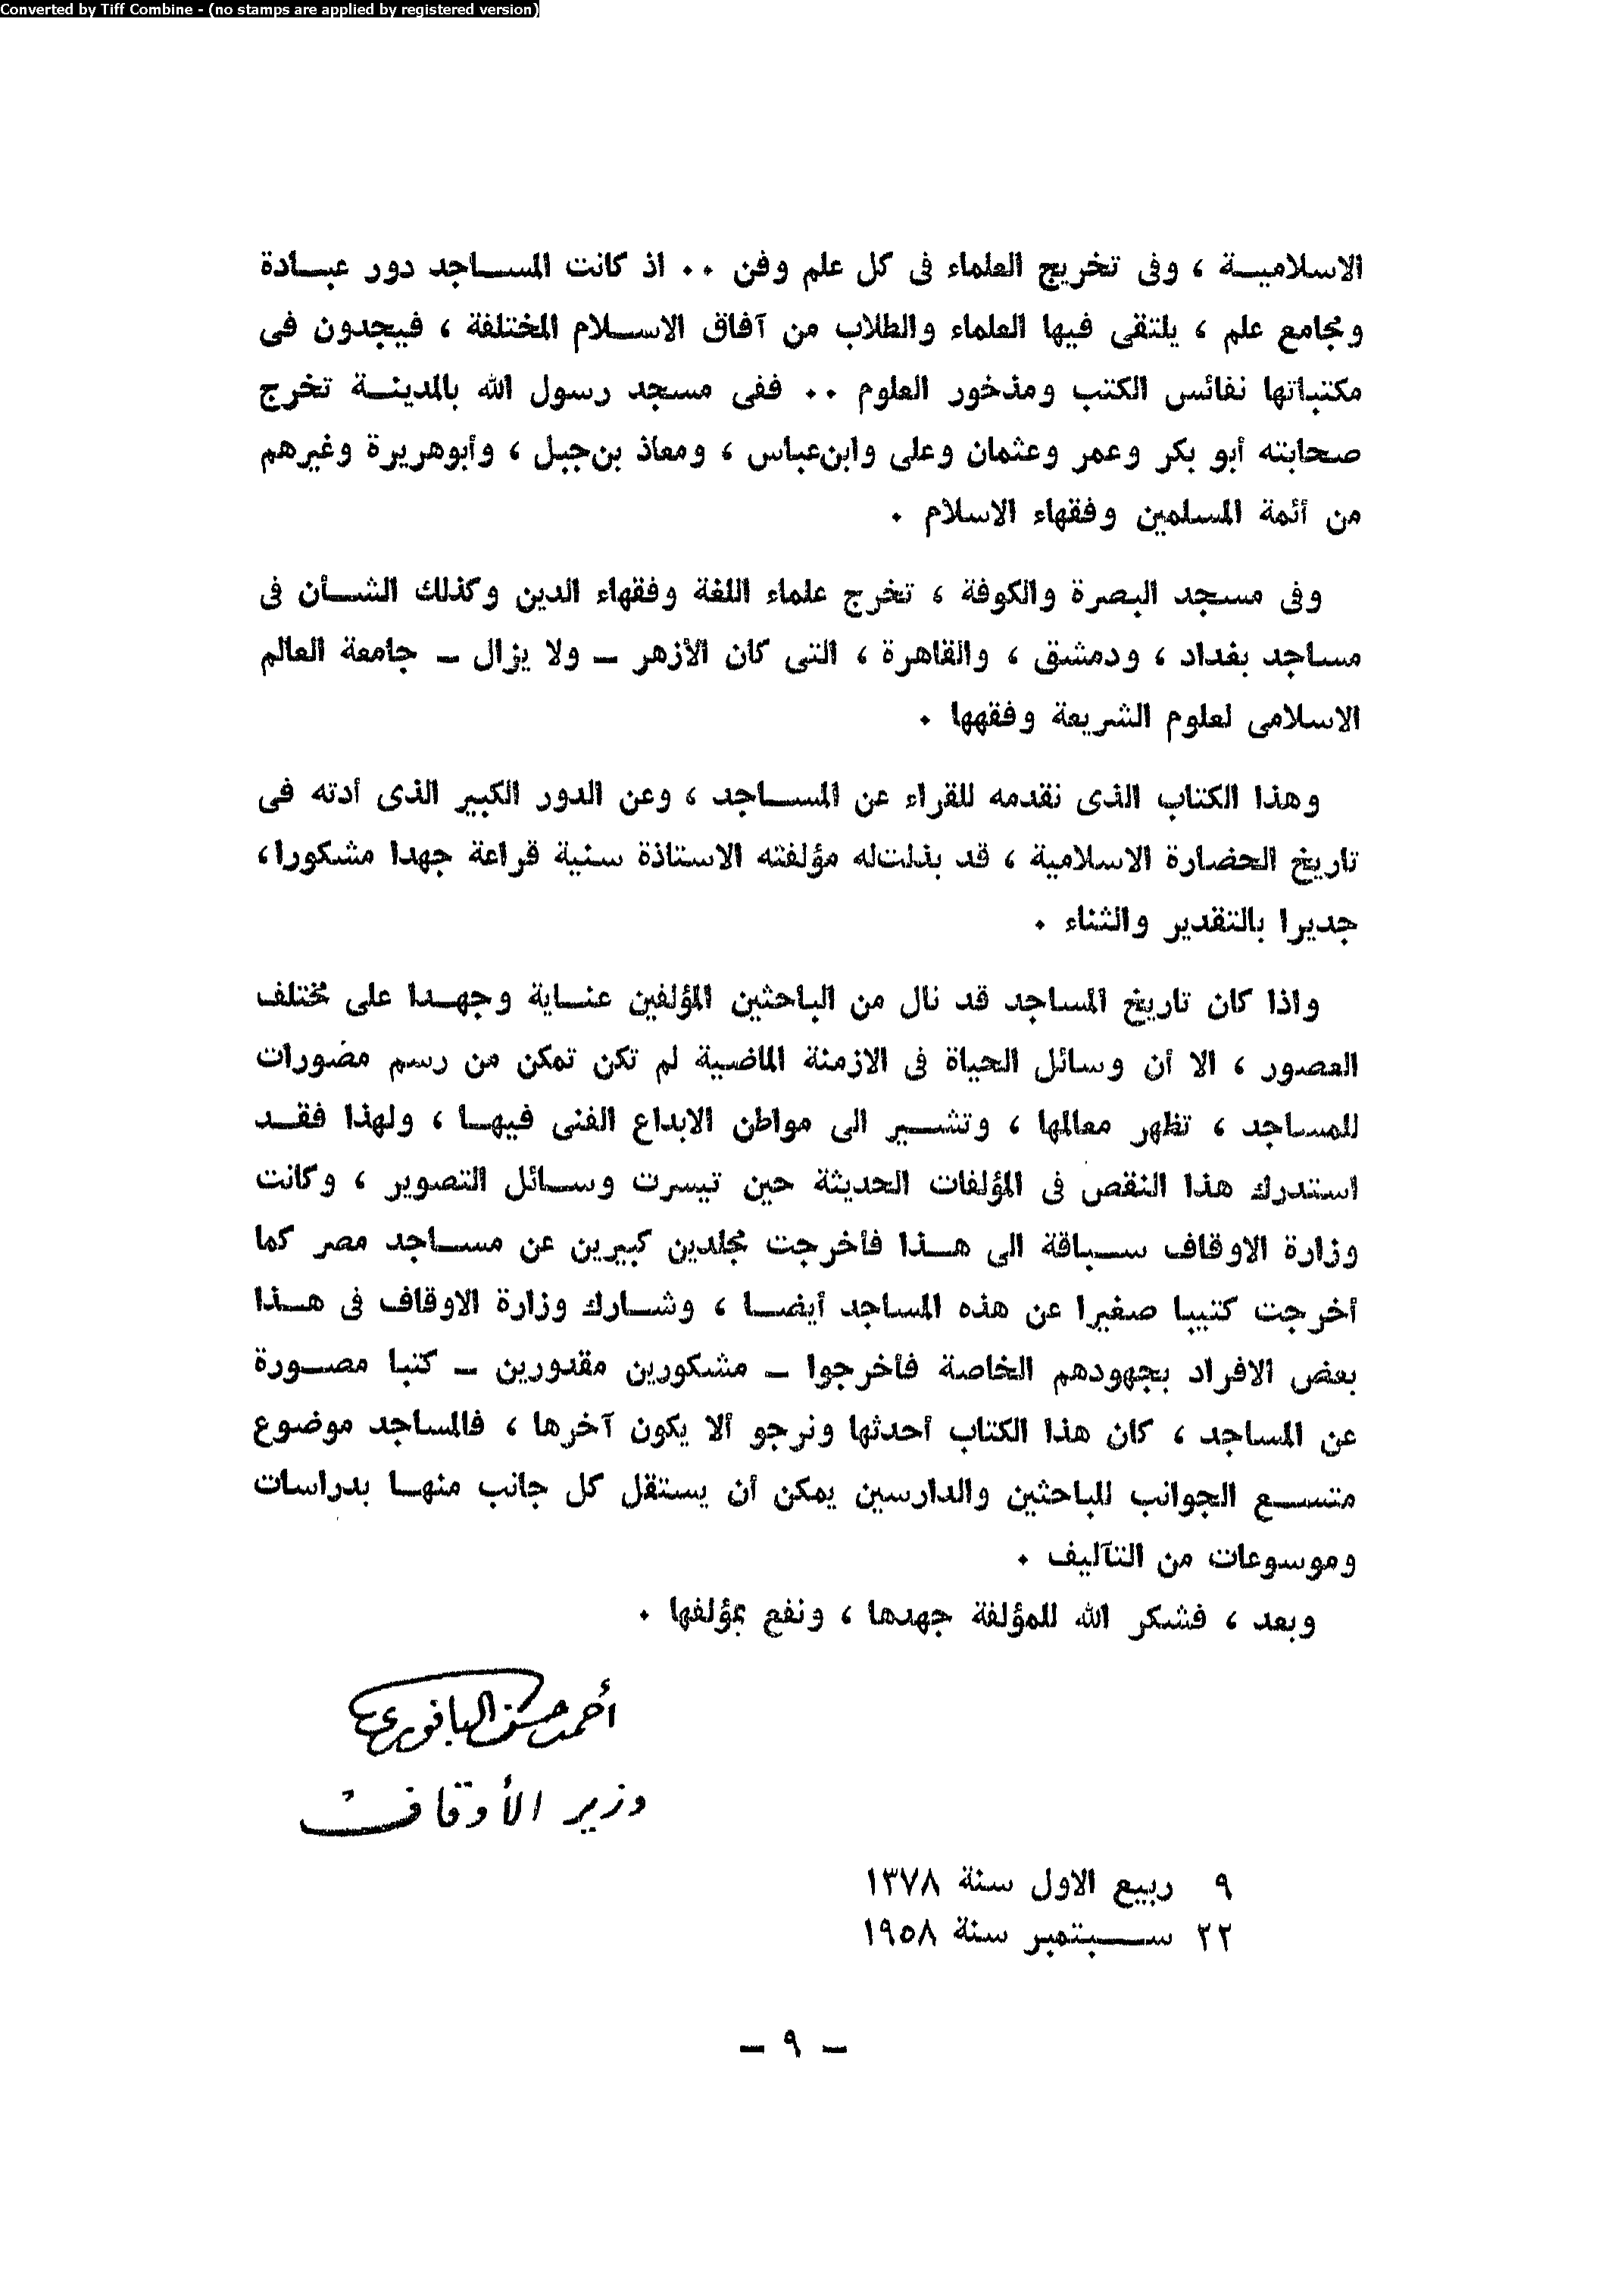 Converted by Tiff Combine - (no stamps are applied by registered version)
الاسلامية ، وفى تخريج العلماء فى كل علم وفن ٠٠ اذ كانت المساجد دور عبادة
ومجامع علم ، يلتقى فيها العلماء والطلاب من آفاق الاسلام المختلفة ، فيجدون فى
مكتباتها نفائس الكتب ومذخور العلوم ٠٠ ففى مسجد رسول الله بالمدينة تخرج
صحابته أبو بكر وعمر وعثمان وعلى وابن عباس ، ومعاذ بن جبل ، وأبو هريرة وغيرهم
من أئمة المسلمين وفقهاء الاسلام ٠
وفى مسجد البصرة والكوفة ، تخرج علماء اللغة وفقهاء الدين وكذلك الشأن فى
مساجد بغداد ، ودمشق ، والقاهرة ، التى كان الأزهر – ولا يزال – جامعة العالم
الاسلامى لعلوم الشريعة وفقهها ٠
وهذا الكتاب الذى نقدمه للقراء عن المساجد ، وعن الدور الكبير الذى أدته فى
تاريخ الحضارة الاسلامية ، قد بذلت له مؤلفته الاستاذة سنية قراعة جهدا مشكورا ،
جديرا بالتقدير والثناء ٠
واذا كان تاريخ المساجد قد نال من الباحثين المؤلفين عناية وجهدا على مختلف
العصور ، الا أن وسائل الحياة فى الازمنة الماضية لم تكن تمكن من رسم مضورات
للمساجد ، تظهر معالمها ، وتشير الى مواطن الابداع الفنى فيها ، ولهذا فقد
استدرك هذا النقص فى المؤلفات الحديثة حين تيسرت وسائل التصوير ، وكانت
وزارة الاوقاف سباقة الى هذا فأخرجت مجلدين كبيرين عن مساجد مصر كما
أخرجت كتيبا صغيرا عن هذه المساجد أيضا ، وشارك وزارة الاوقاف فى هذا
بعض الافراد بجهودهم الخاصة فأخرجوا – مشكورين مقدورين – كتبا مصورة
عن المساجد ، كان هذا الكتاب أحدثها ونرجو ألا يكون آخرها ، فالمساجد موضوع
متسع الجوانب للباحثين والدارسين يمكن أن يستقل كل جانب منها بدراسات
وموسوعات من التآليف ٠
وبعد ، فشكر الله للمؤلفة جهدها ، ونفع بمؤلفها ٠
أحمد حسن الباقورى
وزير الأوقاف
٩ ربيع الاول سنة ١٣٧٨
٢٢ سبتمبر سنة ١٩٥٨
– ٩ –